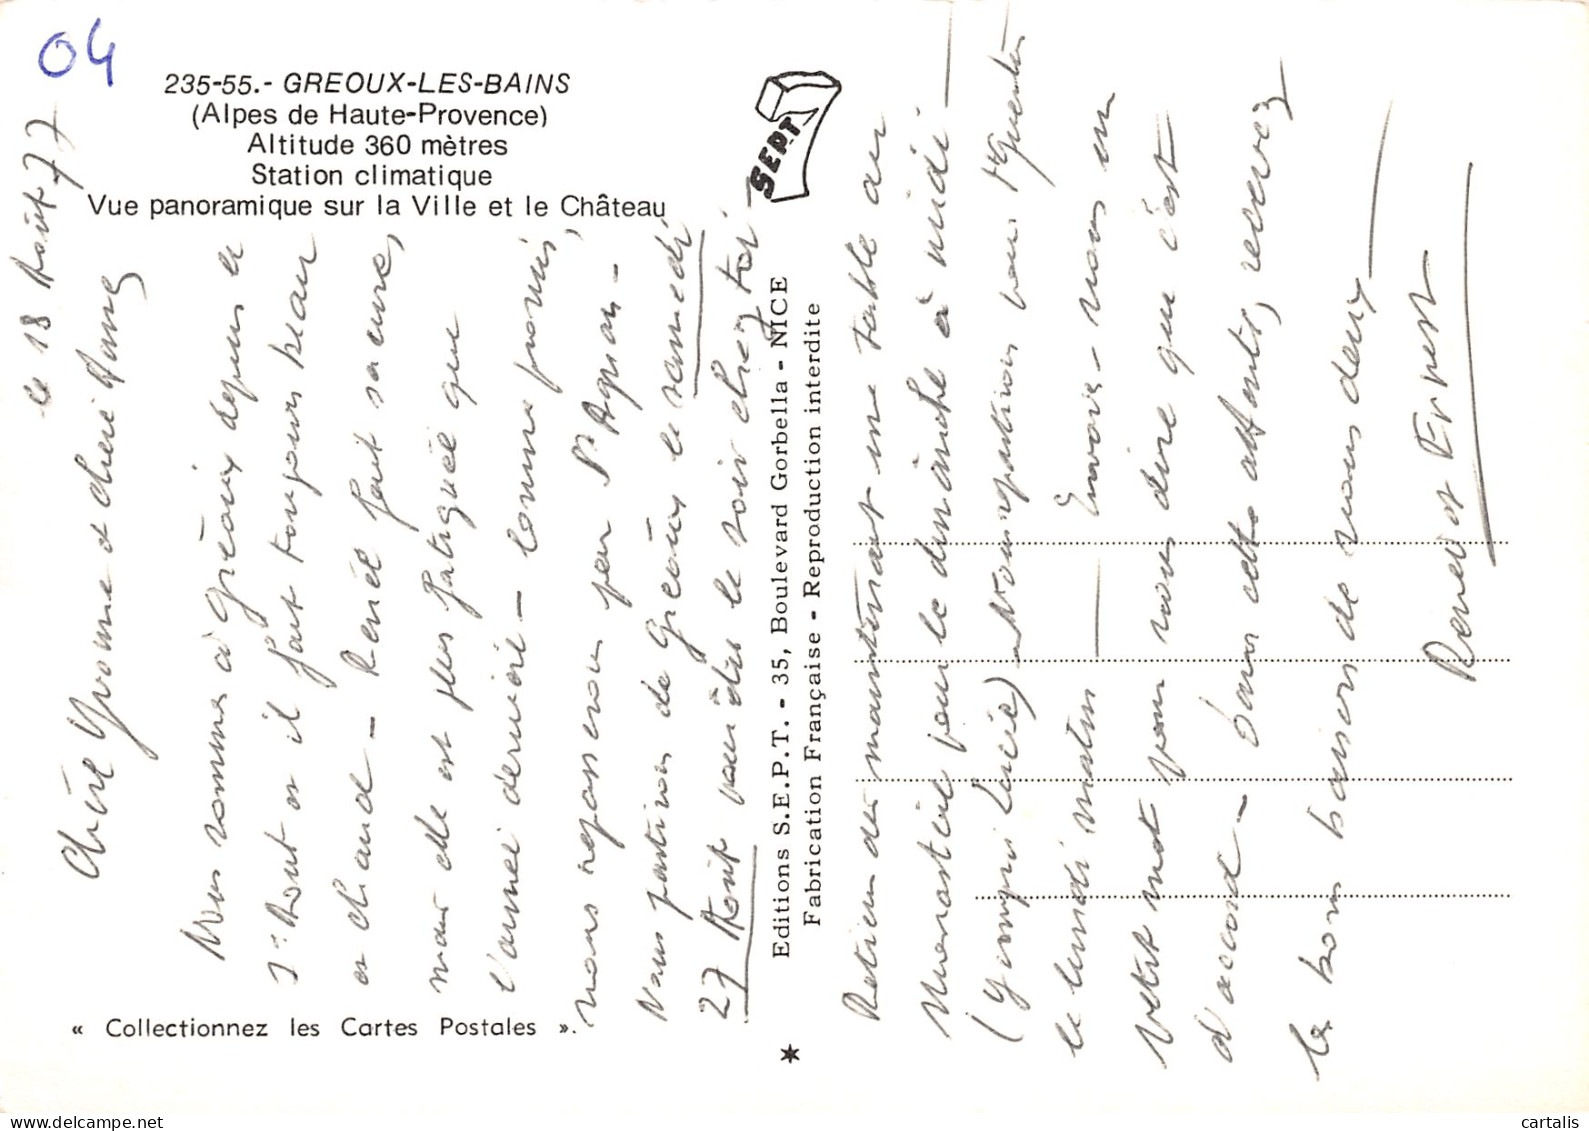 04
235-55.- GREOUX-LES-BAINS
(Alpes de Haute-Provence)
Altitude 360 mètres
Station climatique
Vue panoramique sur la Ville et le Château
SEPT
Editions S.E.P.T. - 35, Boulevard Gorbella - NICE
Fabrication Française - Reproduction interdite
« Collectionnez les Cartes Postales ».
le 18 Août 77
Chère Yvonne et cher
Nous sommes à Gréoux depuis le
1er Août et il fait toujours beau
et chaud - René fait sa cure,
mais elle est plus fatiguée que
l'année dernière - Comme promis,
nous repasserons par St Agnan -
Nous partirons de Gréoux le samedi
27 Août pour être le soir chez toi -
Retiens dès maintenant une table au
Monastère pour le dimanche à midi -
(y compris Lucie) Nous repartirons pour St Quentin
le lundi matin — Envoie-nous un
petit mot pour nous dire que c'est
d'accord - Dans cette attente, recevez
les bons baisers de nous deux
et Ernest
cartalis